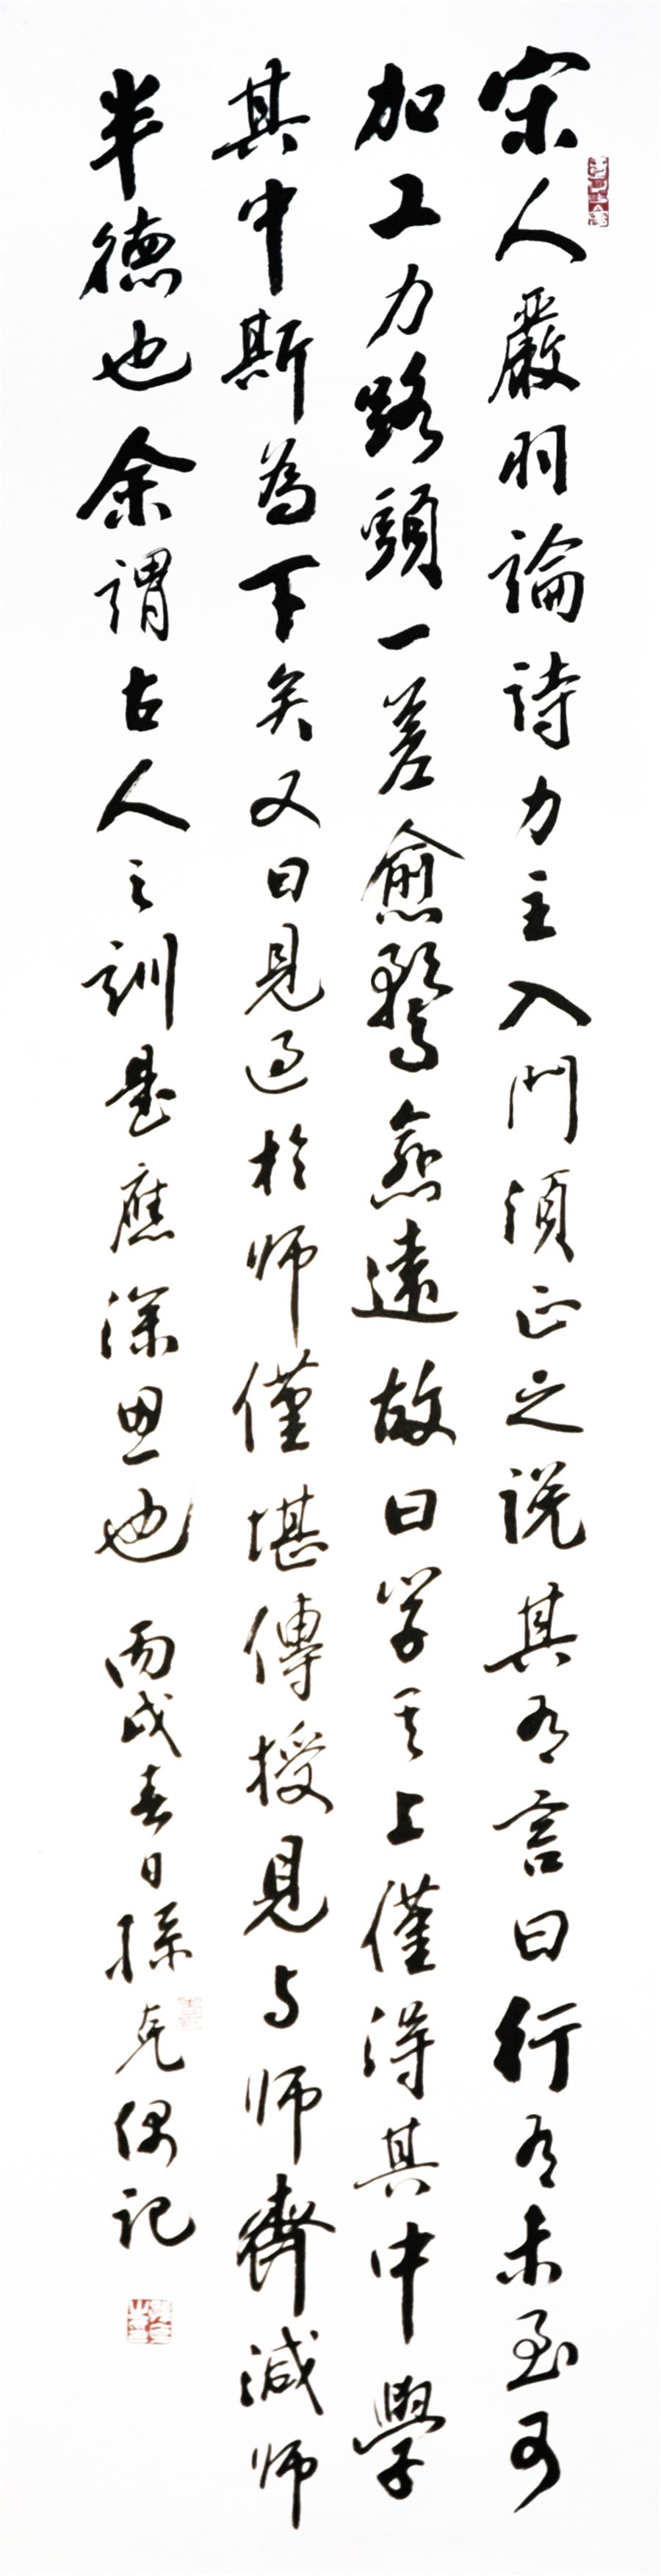 宋人嚴羽論詩力主入門須正之说其有言曰行有未至可
加工力路頭一差愈騖愈遠故曰学其上僅得其中學
其中斯為下矣又曰見过於师僅堪傳授見与师齊減师
半德也余謂古人之訓是應深思也 丙戌春日孫克偶記